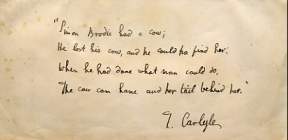 "Simon Brodie had a cow;
He lost his cow, and he could na find her.
When he had done what man could do,
The cow cam hame and her tail behind her."
T. Carlyle